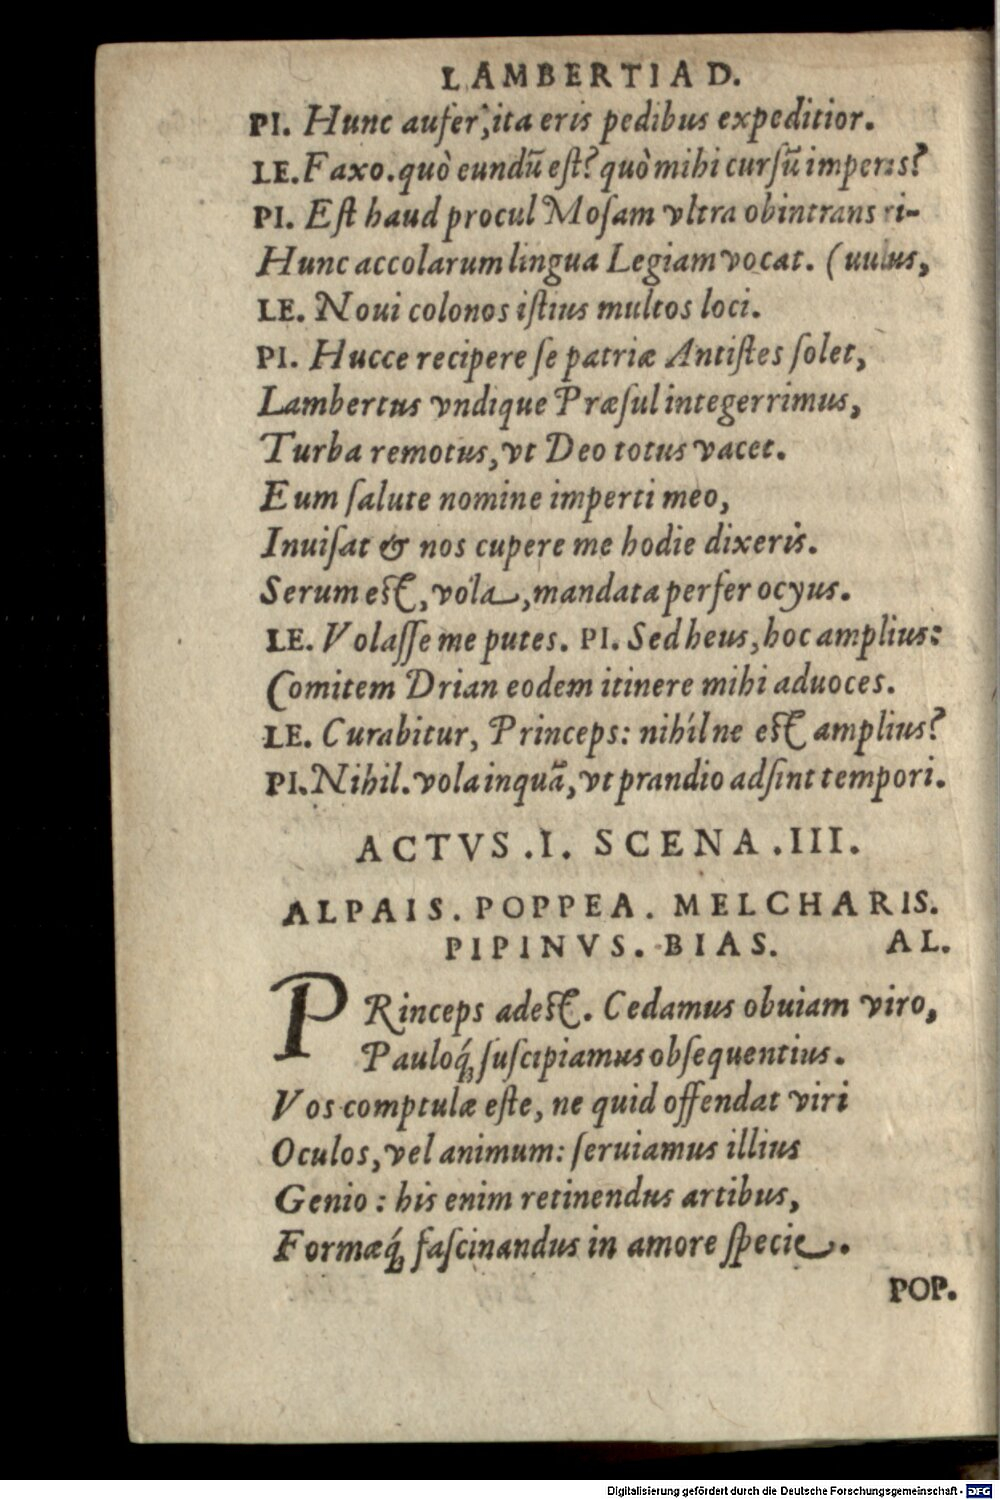 LAMBERTIAD.
PI. Hunc aufer, ita eris pedibus expeditior.
LE. Faxo. quò eundũ eſt? quò mihi curſũ imperas?
PI. Eſt haud procul Moſam vltra obintrans ri-
Hunc accolarum lingua Legiam vocat. (uulus,
LE. Noui colonos iſtius multos loci.
PI. Hucce recipere ſe patriæ Antiſtes ſolet,
Lambertus vndique Præſul integerrimus,
Turba remotus, vt Deo totus vacet.
Eum ſalute nomine imperti meo,
Inuiſat & nos cupere me hodie dixeris.
Serum eſt, vola, mandata perfer ocyus.
LE. Volaſſe me putes. PI. Sed heus, hoc amplius:
Comitem Drian eodem itinere mihi aduoces.
LE. Curabitur, Princeps: nihílne eſt amplius?
PI. Nihil. vola inquã, vt prandio adſint tempori.
ACTVS. I. SCENA. III.
ALPAIS. POPPEA. MELCHARIS.
PIPINVS. BIAS. AL.
PRinceps adeſt. Cedamus obuiam viro,
Pauloq́; ſuſcipiamus obſequentius.
Vos comptulæ eſte, ne quid offendat viri
Oculos, vel animum: ſeruiamus illius
Genio: his enim retinendus artibus,
Formæq́; faſcinandus in amore ſpecie.
POP.
Digitalisierung gefördert durch die Deutsche Forschungsgemeinschaft - DFG